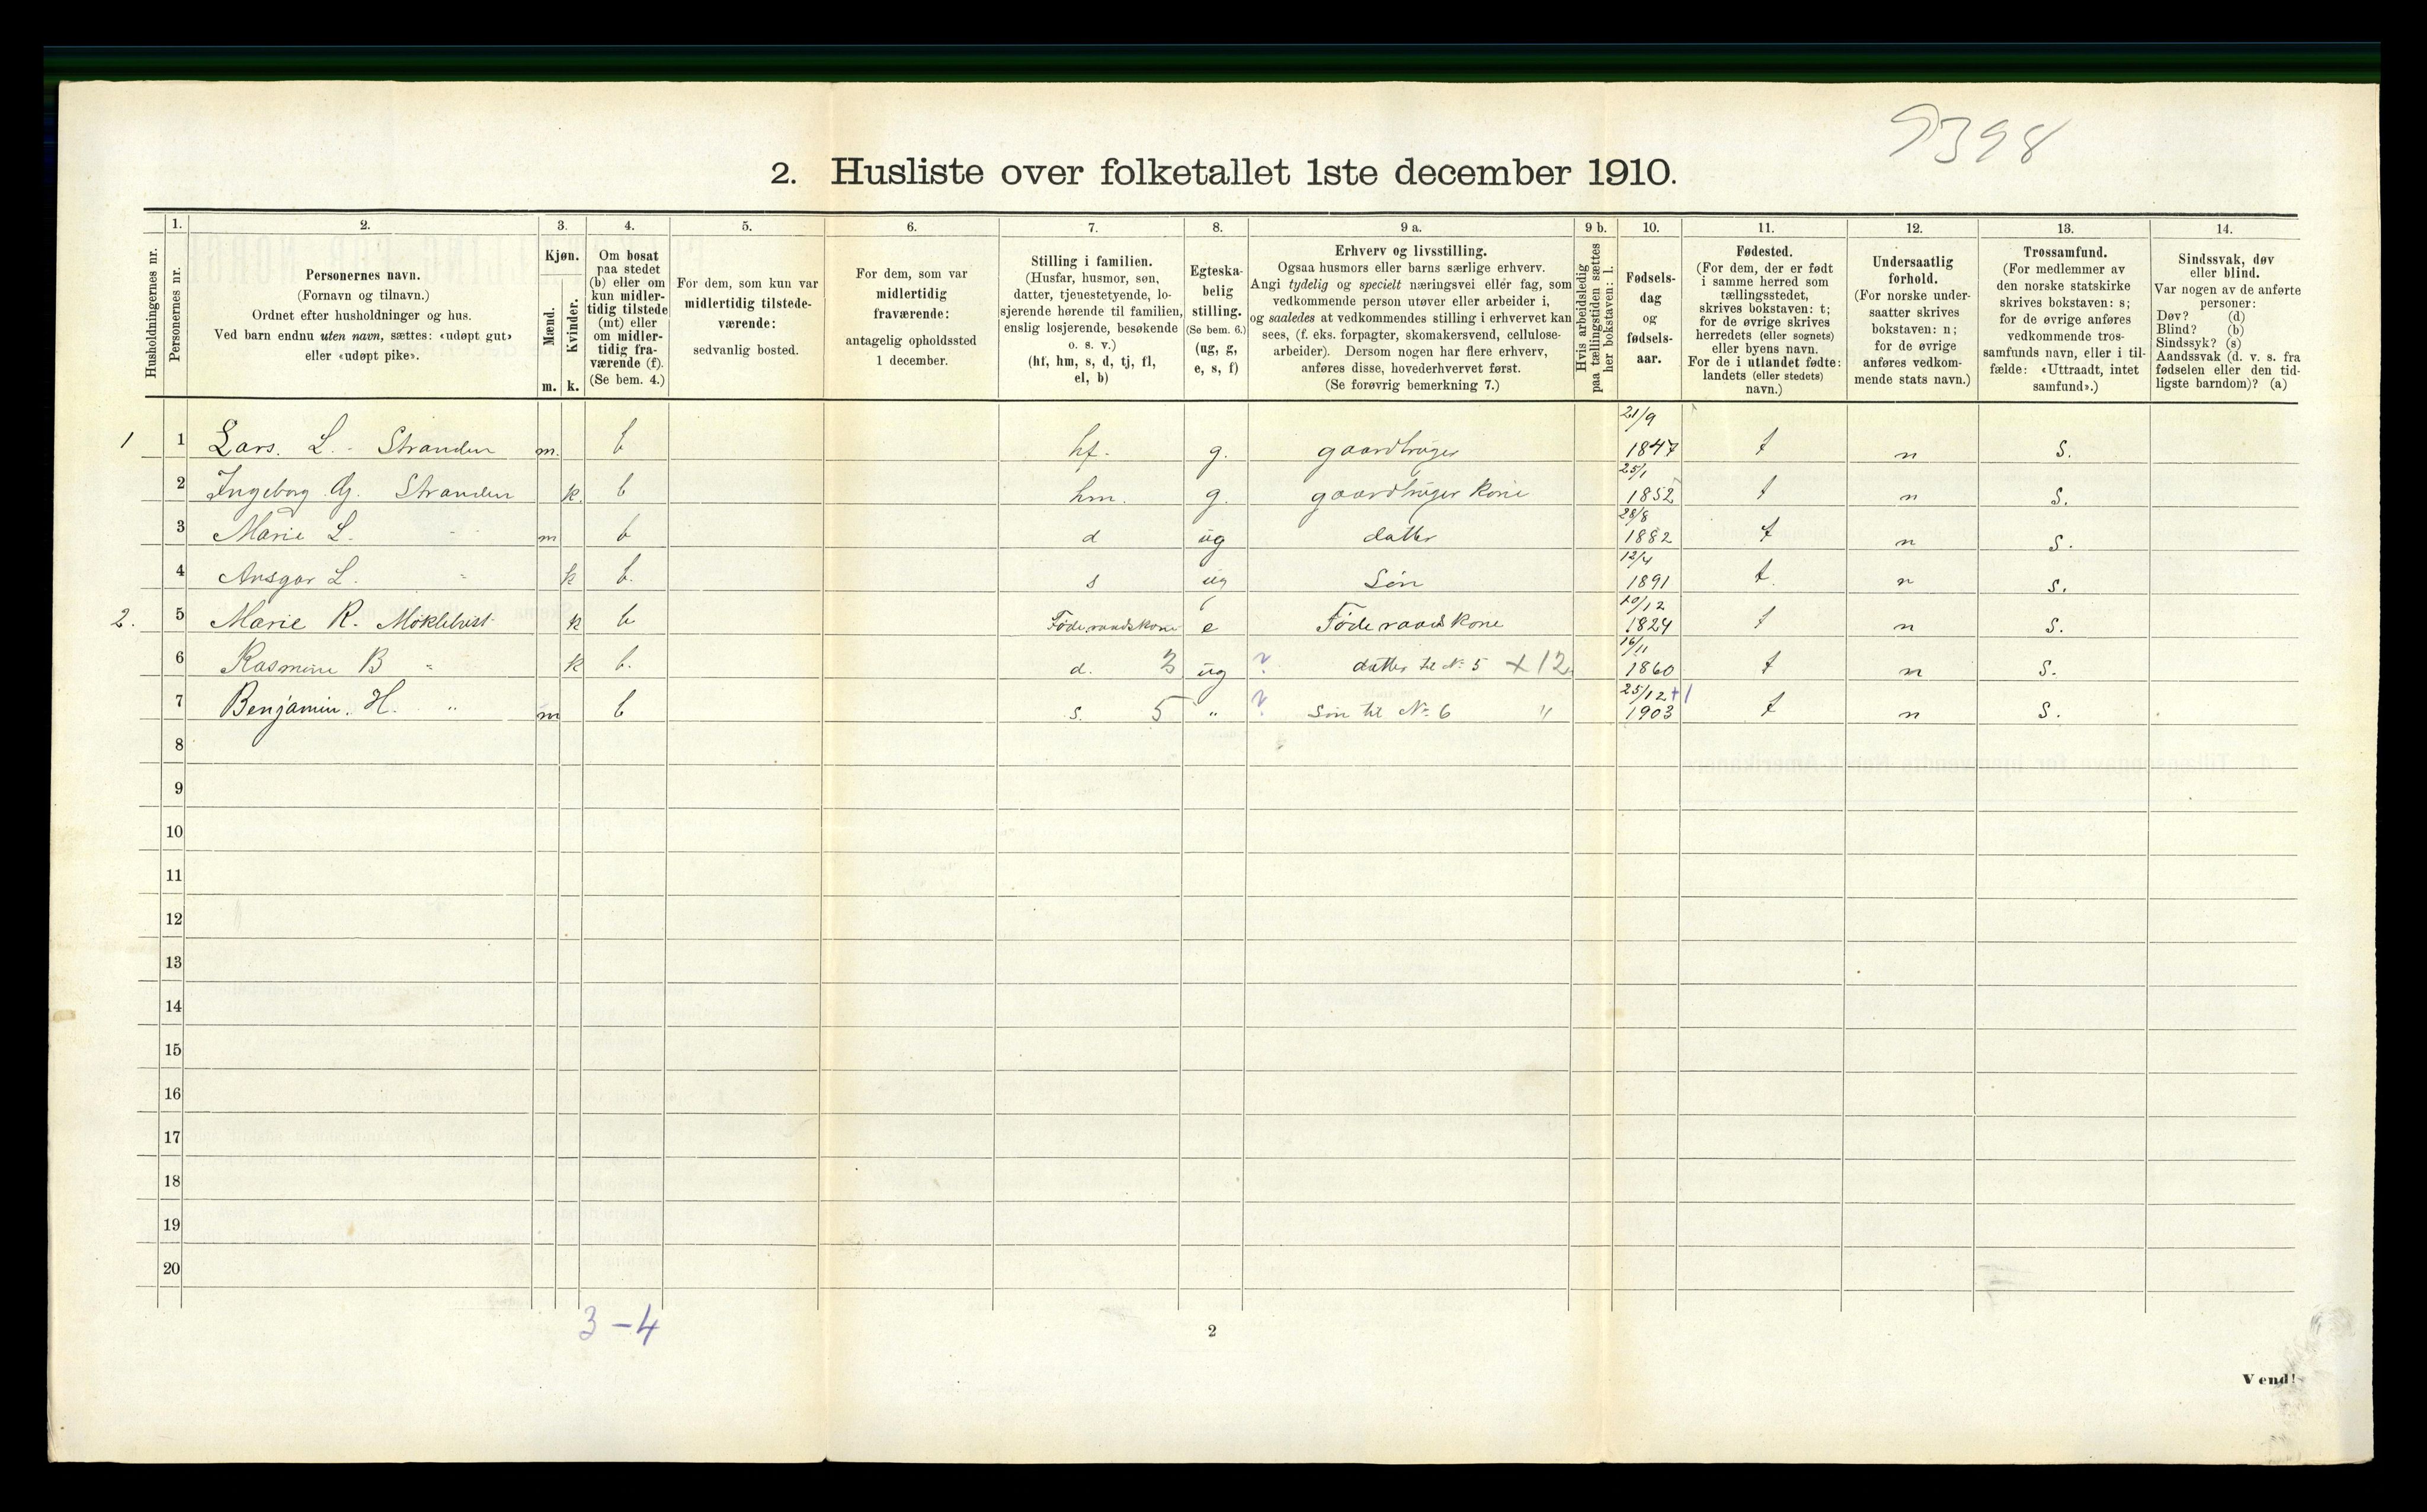 9398
2. Husliste over folketallet 1ste december 1910.
Husholdningernes nr.
1.
Personernes nr.
2.
Personernes navn.
(Fornavn og tilnavn.)
Ordnet efter husholdninger og hus.
Ved barn endnu uten navn, sættes: «udøpt gut»
eller «udøpt pike».
3.
Kjøn.
Mænd.
Kvinder.
m. k.
4.
Om bosat
paa stedet
(b) eller om
kun midler-
tidig tilstede
(mt) eller
om midler-
tidig fra-
værende (f).
(Se bem. 4.)
5.
For dem, som kun var
midlertidig tilstede-
værende:
sedvanlig bosted.
6.
For dem, som var
midlertidig
fraværende:
antagelig opholdssted
1 december.
7.
Stilling i familien.
(Husfar, husmor, søn,
datter, tjenestetyende, lo-
sjerende hørende til familien,
enslig losjerende, besøkende
o. s. v.)
(hf, hm, s, d, tj, fl,
el, b)
8.
Egteska-
belig
stilling.
(Se bem. 6.)
(ug, g,
e, s, f)
9 a.
Erhverv og livsstilling.
Ogsaa husmors eller barns særlige erhverv.
Angi tydelig og specielt næringsvei eller fag, som
vedkommende person utøver eller arbeider i,
og saaledes at vedkommendes stilling i erhvervet kan
sees, (f. eks. forpagter, skomakersvend, cellulose-
arbeider). Dersom nogen har flere erhverv,
anføres disse, hovederhvervet først.
(Se forøvrig bemerkning 7.)
9 b.
Hvis arbeidsledig
paa tællingstiden sættes
her bokstaven: l.
10.
Fødsels-
dag
og
fødsels-
aar.
11.
Fødested.
(For dem, der er født
i samme herred som
tællingsstedet,
skrives bokstaven: t;
for de øvrige skrives
herredets (eller sognets)
eller byens navn.
For de i utlandet fødte:
landets (eller stedets)
navn.)
12.
Undersaatlig
forhold.
(For norske under-
saatter skrives
bokstaven: n;
for de øvrige
anføres vedkom-
mende stats navn.)
13.
Trossamfund.
(For medlemmer av
den norske statskirke
skrives bokstaven: s;
for de øvrige anføres
vedkommende tros-
samfunds navn, eller i til-
fælde: «Uttraadt, intet
samfund».)
14.
Sindssvak, døv
eller blind.
Var nogen av de anførte
personer:
Døv? (d)
Blind? (b)
Sindssyk? (s)
Aandssvak (d. v. s. fra
fødselen eller den tid-
ligste barndom)? (a)
1 1 Lars. L. - Stranden m. b hf. g. gaardbruger 21/9 1847 t n S.
2 Ingeborg G. Stranden k. b hm. g. gaardbruger kone 25/1 1852 t n S.
3 Marie L. - m b d ug datter 28/8 1882 t n S.
4 Ansgar L. " k b. s ug Søn 12/4 1891 t. n S.
2. 5 Marie R. Møklebust k b Føderaadskone e Føderaadskone 10/12 1824 t n S.
6 Rasmine B " k b. d. 3 ug ? datter til No 5 +12. 16/11 1860 t n S.
7 Benjamin. H. " m b s. 5 " ? Søn til No 6 " 25/12 +1 1903 t n S.
8
9
10
11
12
13
14
15
16
17
18
19
20
3-4
2
Vend!